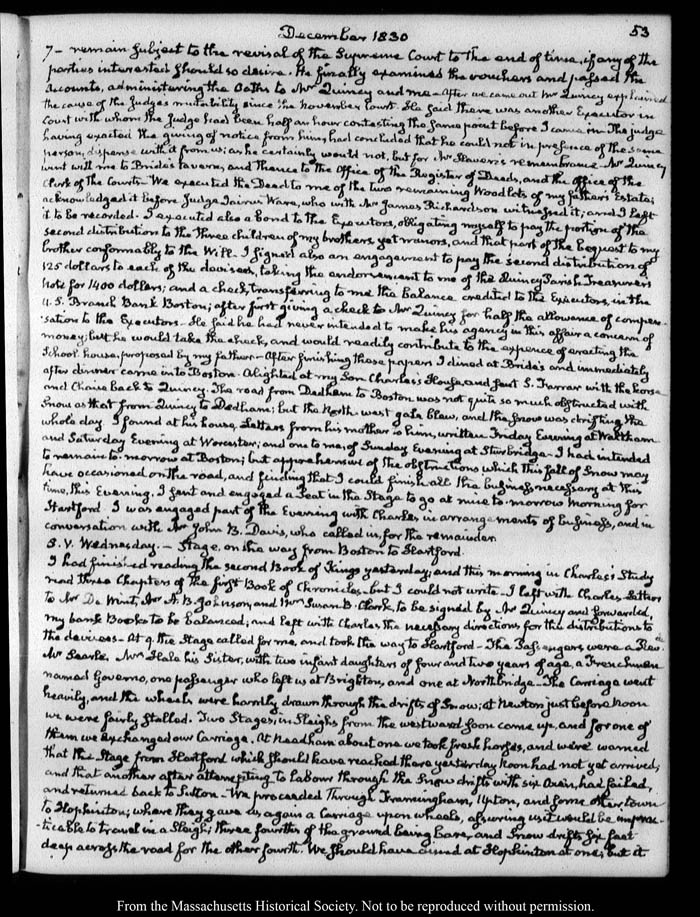 December 1830
53
7 - remain subject to the revisal of the Supreme Court to the end of time, if any of the
parties interested should so desire. He finally examined the vouchers and passed the
Accounts, administering the Oaths to Mr Quincy and me - After we came out Mr Quincy explained
the cause of the Judges mutability since the November Court. He said there was another Executor in
Court with whom the Judge had been half an hour contesting the same point before I came in. The Judge
having exacted the giving of notice from him, had concluded that he could not in presence of the same
person, dispense with it from us; as he certainly would not, but for Mr Haven's remembrance. Mr Quincy
went with me to Bride's tavern, and thence to the Office of the Register of Deeds, and the office of the
Clerk of the Courts - We executed the Deed to me of the two remaining Woodlots of my father's Estate;
acknowledged it before Judge Jairus Ware, who with Mr James Richardson witnessed it; and I left
it to be recorded. I executed also a bond to the Executors, obligating myself to pay the portion of the
second distribution to the three children of my brothers, yet minors, and that part of the bequest to my
brother conformably to the Will. I signed also an engagement to pay the second distribution of
125 dollars to each of the devisees, taking the endorsement to me of the Quincy Parish Treasurer's
Note for 1400 dollars; and a check, transferring to me the balance credited to the Executors, in the
U.S. Branch Bank Boston; after first giving a check to Mr Quincy for half the allowance of compen-
sation to the Executors - He said he had never intended to make his agency in this affair a concern of
money; but he would take the check, and would readily contribute to the expence of erecting the
School house, proposed by my father - After finishing these papers I dined at Bride's and immediately
after dinner came into Boston. Alighted at my Son Charles's House, and sent S. Farrar with the horse
and Chaise back to Quincy. The road from Dedham to Boston was not quite so much obstructed with
Snow as that from Quincy to Dedham; but the North west gale blew, and the Snow was drifting the
whole day. I found at his house, Letters from his mother to him, written Friday Evening at Waltham
and Saturday Evening at Worcester; and one to me, of Sunday Evening at Sturbridge - I had intended
to remain to-morrow at Boston; but apprehensive of the obstructions which this fall of Snow may
have occasioned on the road, and finding that I could finish all the business necessary at this
time, this Evening, I sent and engaged a Seat in the Stage to go at nine to-morrow morning for
Hartford. I was engaged part of the Evening with Charles in arrangements of business, and in
conversation with Mr John B. Davis, who called in, for the remainder.
8. V. Wednesday. - Stage, on the way from Boston to Hartford.
I had finished reading the second Book of Kings yesterday; and this morning in Charles's Study
read three Chapters of the first Book of Chronicles - but I could not write - I left with Charles, Letters
to Mr De Wint, Mr A. B. Johnson, and Mrs Susan B. Clark, to be signed by Mr Quincy and forwarded,
my bank Books to be balanced; and left with Charles the necessary directions for the distributions to
the devisees - At 9 the Stage called for me, and took the way to Hartford - The Passengers were a Revd
Mr Searle. Mrs Hale his Sister, with two infant daughters of four and two years of age, a Frenchman
named Governo, one passenger who left us at Brighton, and one at Northbridge - The Carriage went
heavily, and the wheels were hardly drawn through the drifts of Snow; at Newton just before Noon
we were fairly stalled. Two Stages, in Sleighs from the westward soon came up, and for one of
them we exchanged our Carriage. At Needham about one we took fresh horses, and were warned
that the Stage from Hartford which should have reached there yesterday Noon had not yet arrived;
and that another after attempting to labour through the Snow drifts with six Oxen, had failed,
and returned back to Sutton - We proceeded through Framingham, Upton, and some other town
to Hopkinton; where they gave us again a Carriage upon wheels, assuring us it would be imprac-
ticable to travel in a Sleigh; three fourths of the ground being bare, and Snow drifts six feet
deep across the road for the other fourth. We should have dined at Hopkinton at one; but it
From the Massachusetts Historical Society. Not to be reproduced without permission.